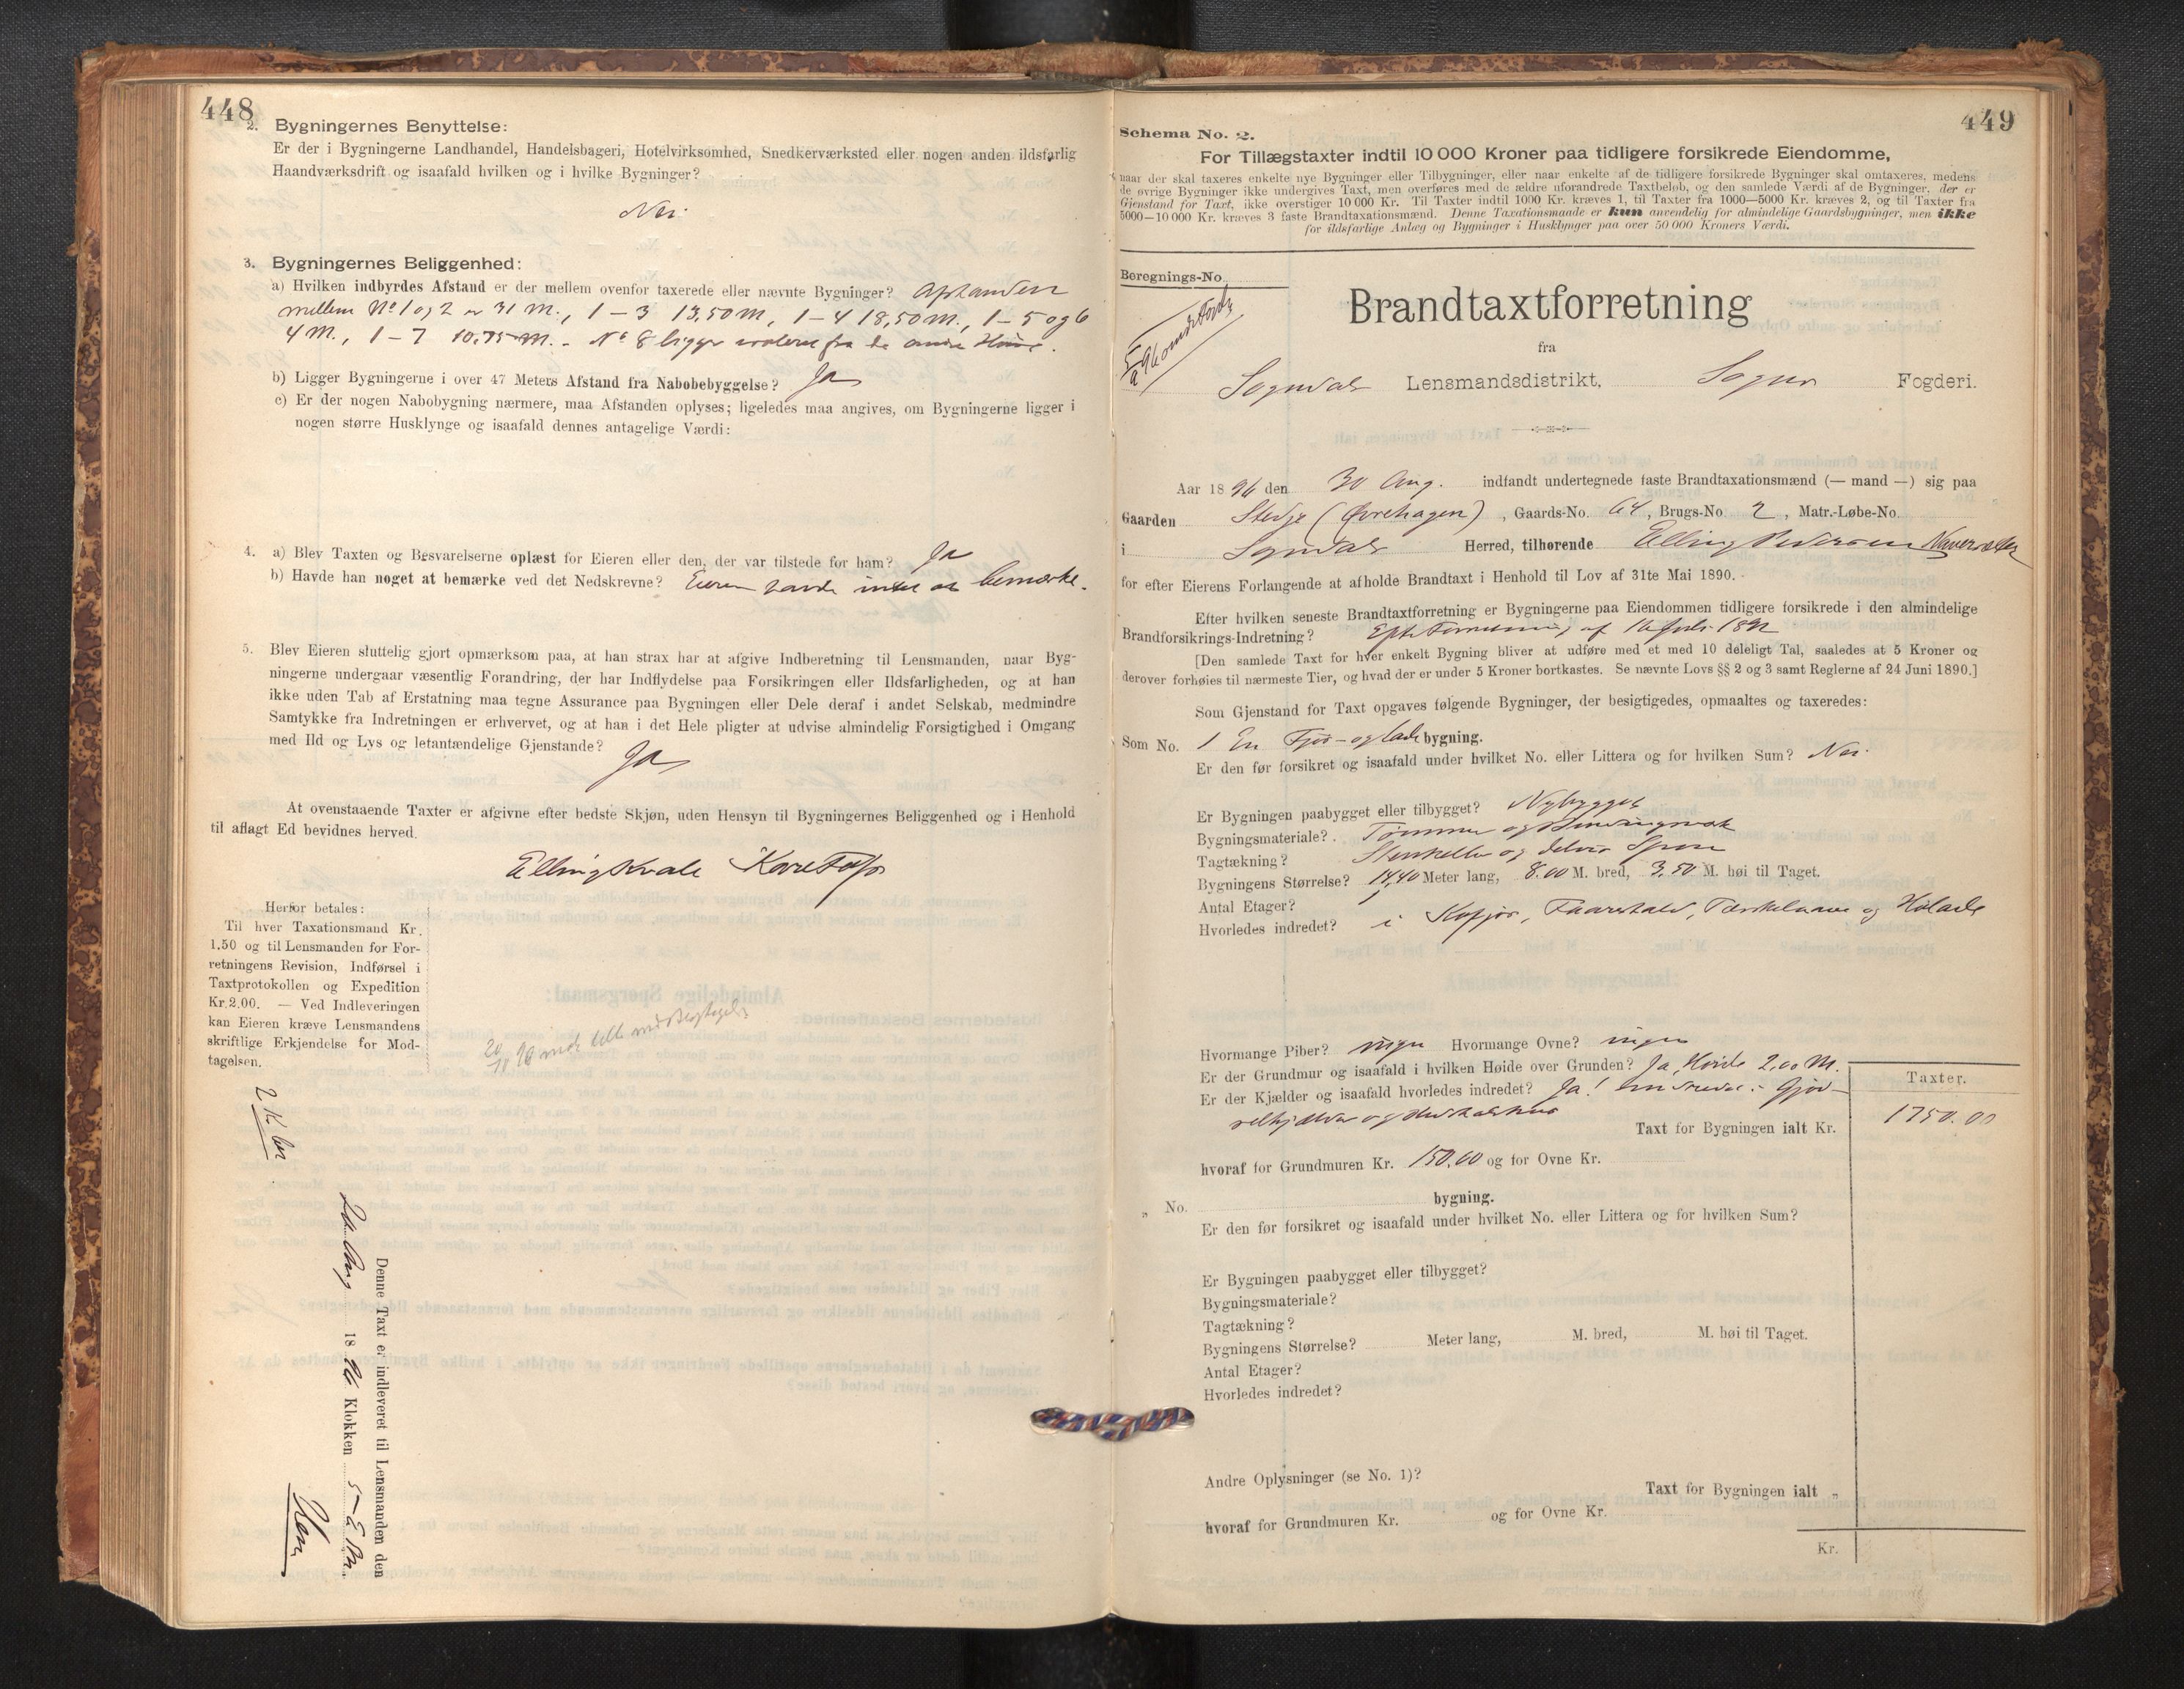 448
2. Bygningernes Benyttelse:
Er der i Bygningerne Landhandel, Handelsbageri, Hotelvirksomhed, Snedkerværksted eller nogen anden ildsfarlig
Haandværksdrift og isaafald hvilken og i hvilke Bygninger?
Nei
3. Bygningernes Beliggenhed:
a) Hvilken indbyrdes Afstand er der mellem ovenfor taxerede eller nævnte Bygninger? Afstanden
mellem No 1 og 2 er 31 M., 1 – 3 13,50 M., 1 – 4 18,50 M., 1 – 5 og 6
4 M., 1 – 7 10.75 M. – No 8 ligger isoleret fra de andre Huse.
b) Ligger Bygningerne i over 47 Meters Afstand fra Nabobebyggelse? Ja
c) Er der nogen Nabobygning nærmere, maa Afstanden oplyses; ligeledes maa angives, om Bygningerne ligger i
nogen større Husklynge og isaafald dennes antagelige Værdi:
4. a) Blev Taxten og Besvarelserne oplæst for Eieren eller den, der var tilstede for ham? Ja
b) Havde han noget at bemærke ved det Nedskrevne? Eieren havde intet at bemærke.
5. Blev Eieren sluttelig gjort opmærksom paa, at han strax har at afgive Indberetning til Lensmanden, naar Byg-
ningerne undergaar væsentlig Forandring, der har Indflydelse paa Forsikringen eller Ildsfarligheden, og at han
ikke uden Tab af Erstatning maa tegne Assurance paa Bygningen eller Dele deraf i andet Selskab, medmindre
Samtykke fra Indretningen er erhvervet, og at han i det Hele pligter at udvise almindelig Forsigtighed i Omgang
med Ild og Lys og letantændelige Gjenstande?
Ja
At ovenstaaende Taxter er afgivne efter bedste Skjøn, uden Hensyn til Bygningernes Beliggenhed og i Henhold
til aflagt Ed bevidnes herved.
Elling Kvale
Herfor betales:
Til hver Taxationsmand Kr.
1.50 og til Lensmanden for For-
retningens Revision, Indførsel i
Taxtprotokollen og Expedition
Kr. 2.00. — Ved Indleveringen
kan Eieren kræve Lensmandens
skriftlige Erkjendelse for Mod-
tagelsen.
Denne Taxt er indleveret til Lensmanden den
Aug 1896 Klokken 5
449
Schema No. 2.
For Tillægstaxter indtil 10 000 Kroner paa tidligere forsikrede Eiendomme,
naar der skal taxeres enkelte nye Bygninger eller Tilbygninger, eller naar enkelte af de tidligere forsikrede Bygninger skal omtaxeres, medens
de øvrige Bygninger ikke undergives Taxt, men overføres med de ældre uforandrede Taxtbeløb, og den samlede Værdi af de Bygninger, der er
Gjenstand for Taxt, ikke overstiger 10 000 Kr. Til Taxter indtil 1000 Kr. kræves 1, til Taxter fra 1000—5000 Kr. kræves 2, og til Taxter fra
5000—10 000 Kr. kræves 3 faste Brandtaxationsmænd. Denne Taxationsmaade er kun anvendelig for almindelige Gaardsbygninger, men ikke
for ildsfarlige Anlæg og Bygninger i Husklynger paa over 50 000 Kroners Værdi.
Beregnings-No
Brandtaxtforretning
fra
Sogndals Lensmandsdistrikt, Sogns Fogderi.
Aar 1896 den 30 Aug. indfandt undertegnede faste Brandtaxationsmænd (— mand —) sig paa
Gaarden Stedje (Øvrehagen), Gaards-No. 64, Brugs-No. 2, Matr.-Løbe-No.
i Sogndals Herred, tilhørende Elling Pedersen
for efter Eierens Forlangende at afholde Brandtaxt i Henhold til Lov af 31te Mai 1890.
Efter hvilken seneste Brandtaxtforretning er Bygningerne paa Eiendommen tidligere forsikrede i den almindelige
Brandforsikrings-Indretning? Efter Forretning af 16 Juli 1892
[Den samlede Taxt for hver enkelt Bygning bliver at udføre med et med 10 deleligt Tal, saaledes at 5 Kroner og
derover forhøies til nærmeste Tier, og hvad der er under 5 Kroner bortkastes. Se nævnte Lovs §§ 2 og 3 samt Reglerne af 24 Juni 1890.]
Som Gjenstand for Taxt opgaves følgende Bygninger, der besigtigedes, opmaaltes og taxeredes:
Som No. 1 En Fjøs- og lade bygning.
Er den før forsikret og isaafald under hvilket No. eller Littera og for hvilken Sum? Nei
Er Bygningen paabygget eller tilbygget? Nybygget
Bygningsmateriale? Tømmer og Bindingsverk
Tagtækning? Stenheller og delvis Spon
Bygningens Størrelse? 14,40 Meter lang, 8.00 M. bred, 3.50 M. høi til Taget.
Antal Etager? 1
Hvorledes indredet? i Kofjøs, Faarestald, Tærskelaave og Hølade
Hvormange Piber? ingen Hvormange Ovne? ingen
Er der Grundmur og isaafald i hvilken Høide over Grunden? Ja, Høide 2,00 M.
Er der Kjælder og isaafald hvorledes indredet? Ja! indredet i Gjød-
selkjælder og
Taxt for Bygningen ialt Kr.
Taxter.
1750.00
hvoraf for Grundmuren Kr. 150.00 og for Ovne Kr.
„ No. bygning.
Er den før forsikret og isaafald under hvilket No. eller Littera og for hvilken Sum?
Er Bygningen paabygget eller tilbygget?
Bygningsmateriale?
Tagtækning?
Bygningens Størrelse? Meter lang, M. bred, M. høi til Taget.
Antal Etager?
Hvorledes indredet?
Andre Oplysninger (se No. 1)?
Taxt for Bygningen ialt „
hvoraf for Grundmuren Kr. og for Ovne Kr.
Kr.